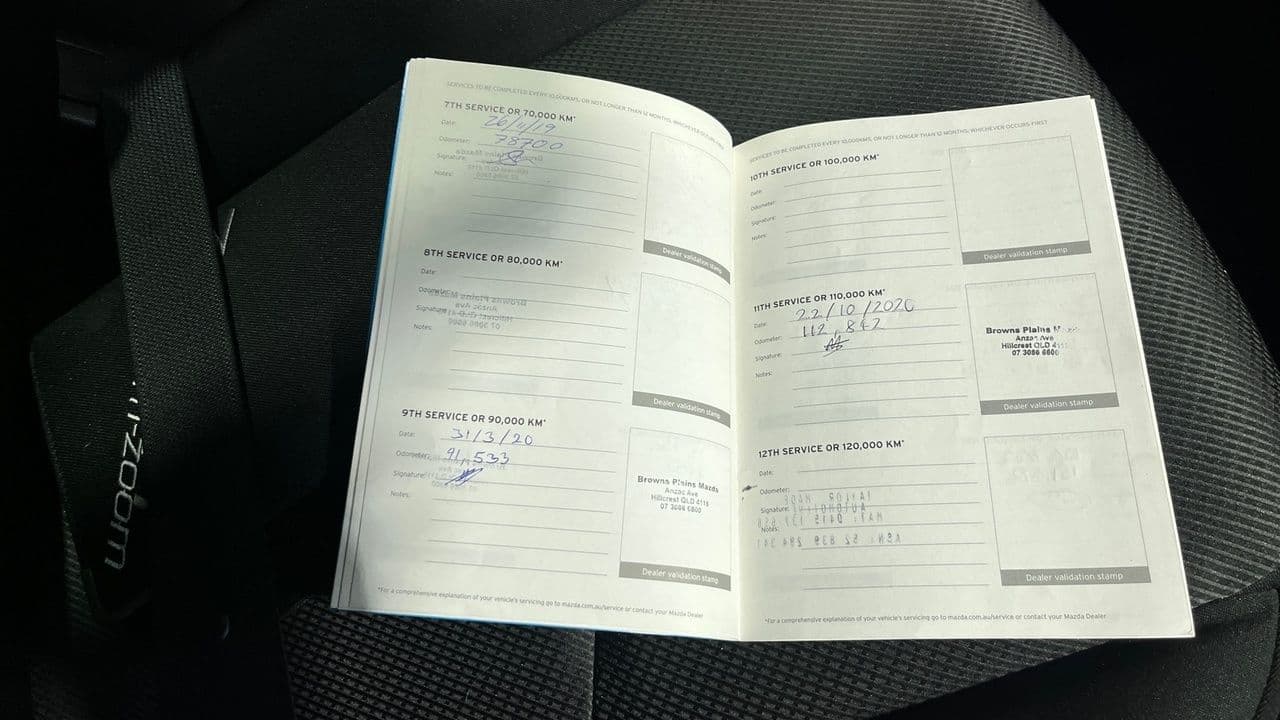 SERVICES TO BE COMPLETED EVERY 10,000KMS, OR NOT LONGER THAN 12 MONTHS, WHICHEVER OCCURS FIRST
7TH SERVICE OR 70,000 KM*
Date: 26/11/19
Odometer: 78700
Signature:
Notes:
Dealer validation stamp
8TH SERVICE OR 80,000 KM*
Date:
Odometer:
Signature:
Notes:
Dealer validation stamp
9TH SERVICE OR 90,000 KM*
Date: 31/3/20
Odometer: 91,533
Signature:
Notes:
Browns Plains Mazda
Anzac Ave
Hillcrest QLD 4118
07 3086 6600
Dealer validation stamp
*For a comprehensive explanation of your vehicle's servicing go to mazda.com.au/service or contact your Mazda Dealer
SERVICES TO BE COMPLETED EVERY 10,000KMS, OR NOT LONGER THAN 12 MONTHS, WHICHEVER OCCURS FIRST
10TH SERVICE OR 100,000 KM*
Date:
Odometer:
Signature:
Notes:
Dealer validation stamp
11TH SERVICE OR 110,000 KM*
Date: 22/10/2020
Odometer: 112,842
Signature:
Notes:
Browns Plains
Anzac Ave
Hillcrest QLD
07 3086 6600
Dealer validation stamp
12TH SERVICE OR 120,000 KM*
Date:
Odometer:
Signature:
Notes:
Dealer validation stamp
*For a comprehensive explanation of your vehicle's servicing go to mazda.com.au/service or contact your Mazda Dealer
zoom